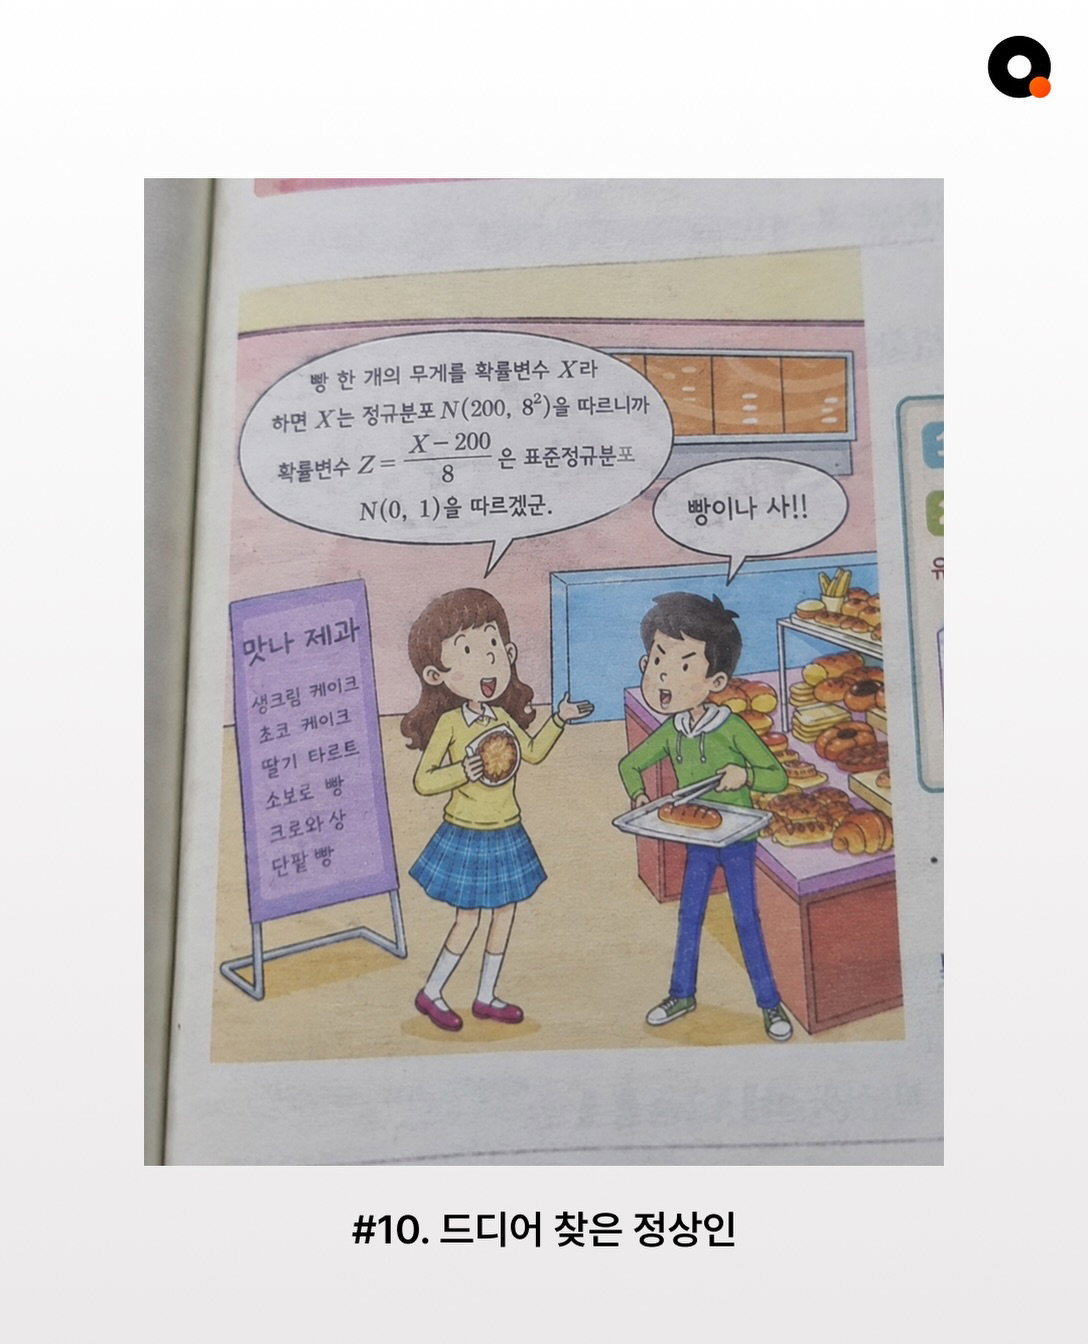 빵 한 개의 무게를 확률변수 X라
하면 X는 정규분포 N(200, 8²)을 따르니까
확률변수 Z = (X − 200)/8 은 표준정규분포
N(0, 1)을 따르겠군.
빵이나 사!!
맛나 제과
생크림 케이크
초코 케이크
딸기 타르트
소보로 빵
크로와상
단팥빵
유
#10. 드디어 찾은 정상인